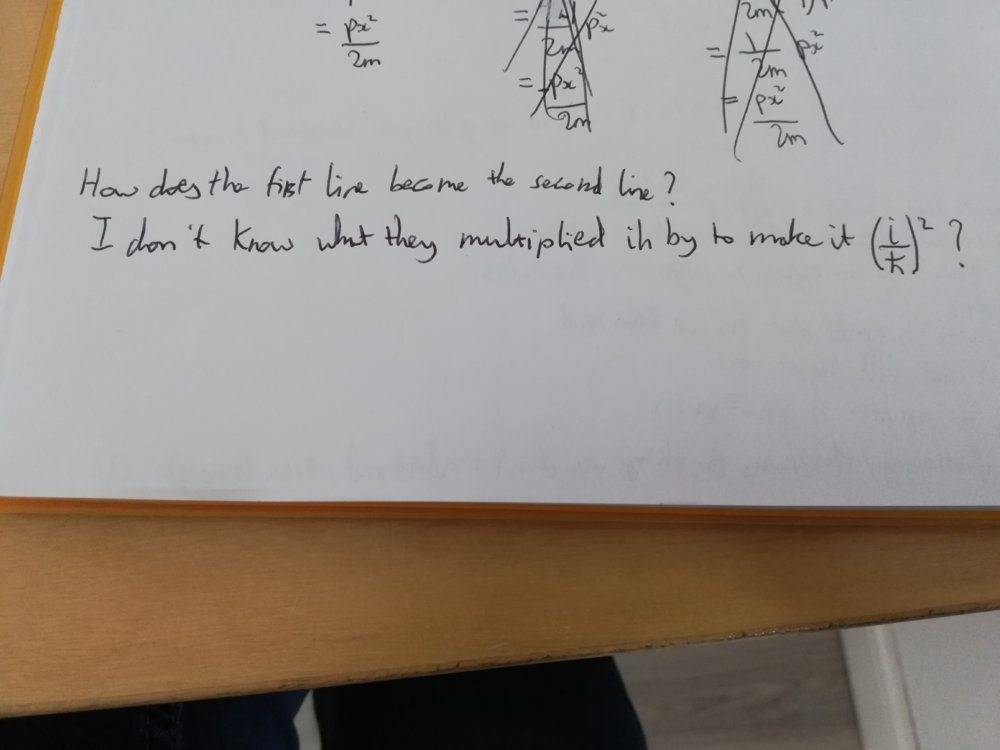 = px²/2m
=
2m
px²
= px²/2m
2m
= 1/2m px²
= px²/2m
How does the first line become the second line?
I don't know what they multiplied iħ by to make it (i/ħ)² ?